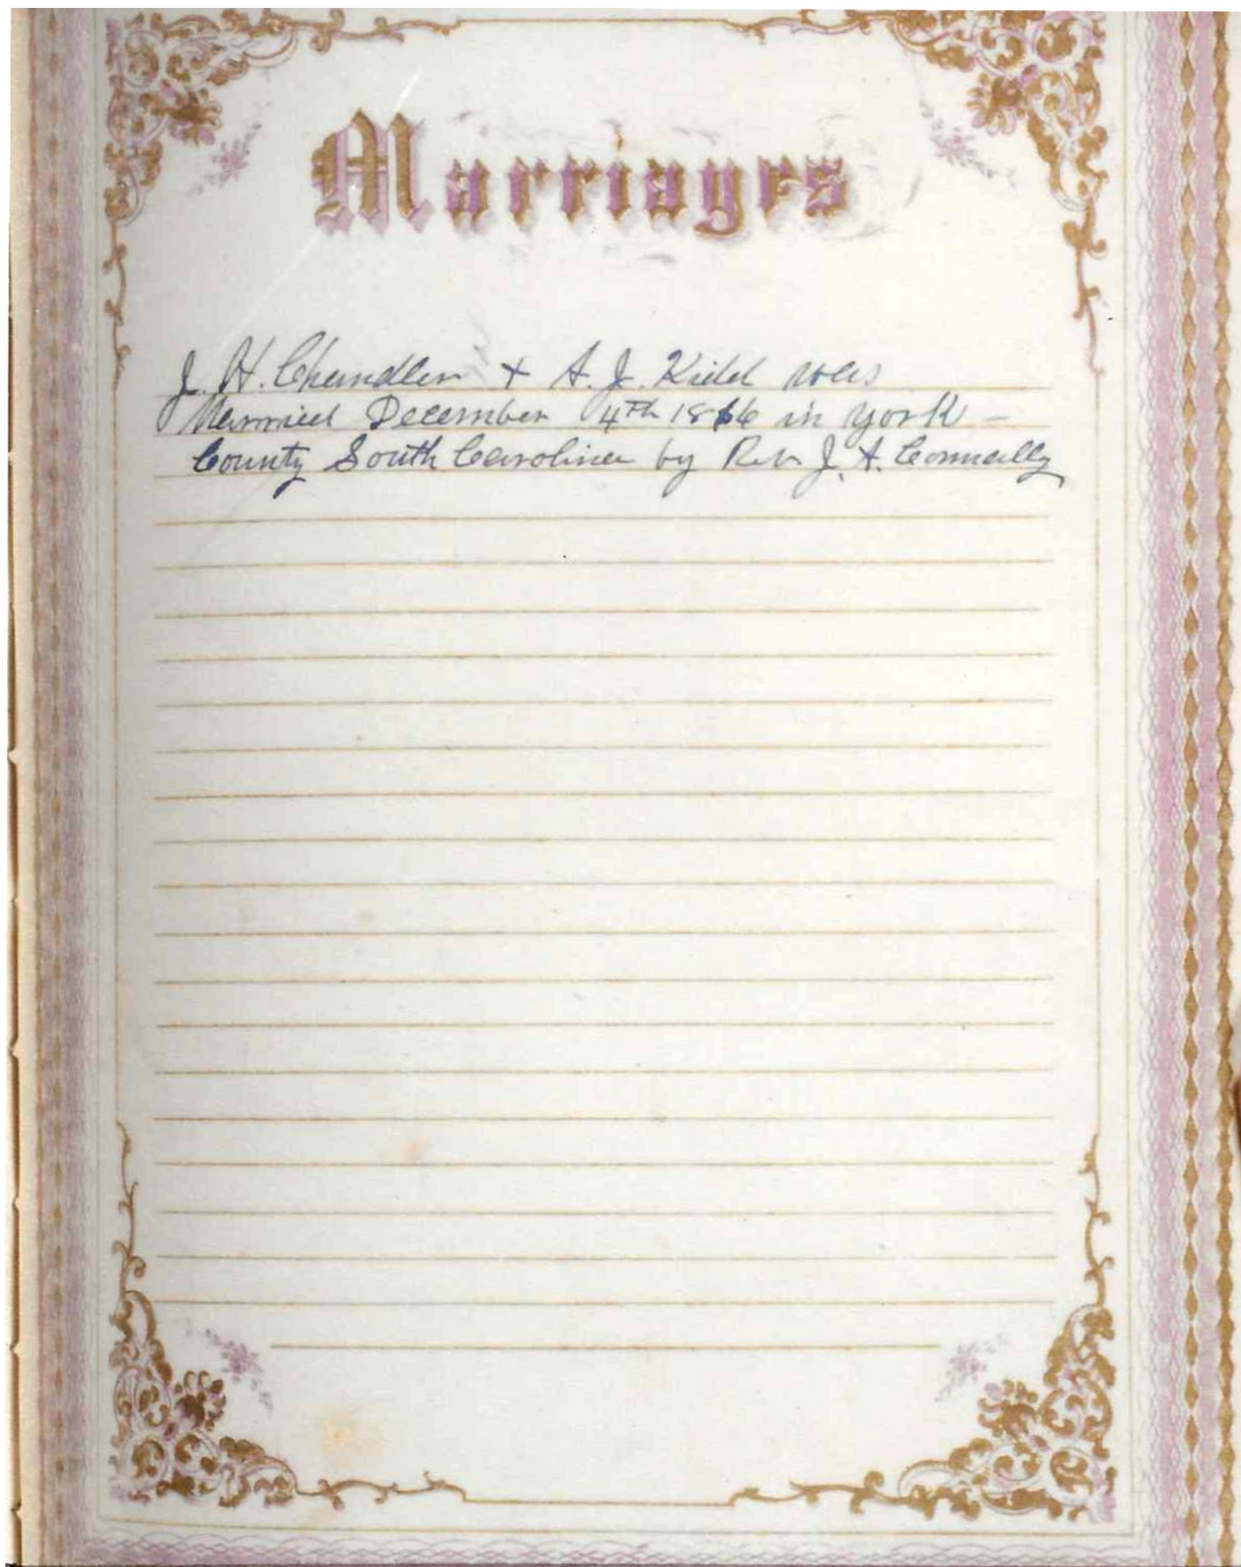 Marriages
J. H. Chandler + A. J. Kidd was
Married December 4th 1866 in York -
County South Carolina by Rev J. A. Connally